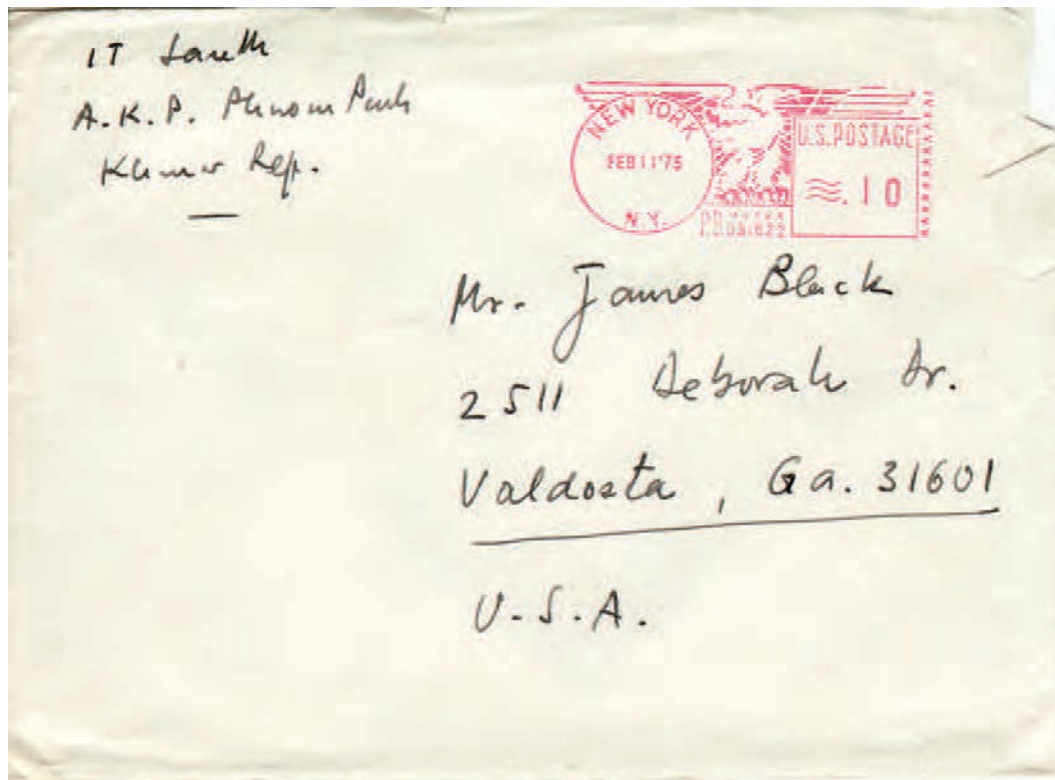 IT Sareth
A.K.P. Phnom Penh
Khmer Rep.
NEW YORK
FEB 11 '75
N.Y.
U.S. POSTAGE
.10
Mr. James Black
2511 Deborah Dr.
Valdosta, Ga. 31601
U.S.A.